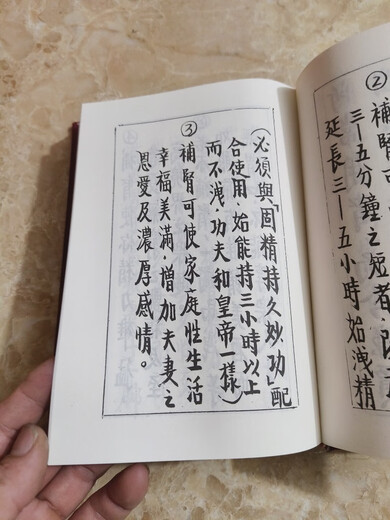 ②
補腎
三—五分鐘之短者．
延長三—五小時始洩精
（必須與「固精持久妙功」配
合使用．始能持三小時以上
而不洩．功夫和皇帝一樣）
③
補腎可使家庭性生活
幸福美滿．增加夫妻之
恩愛及濃厚感情。